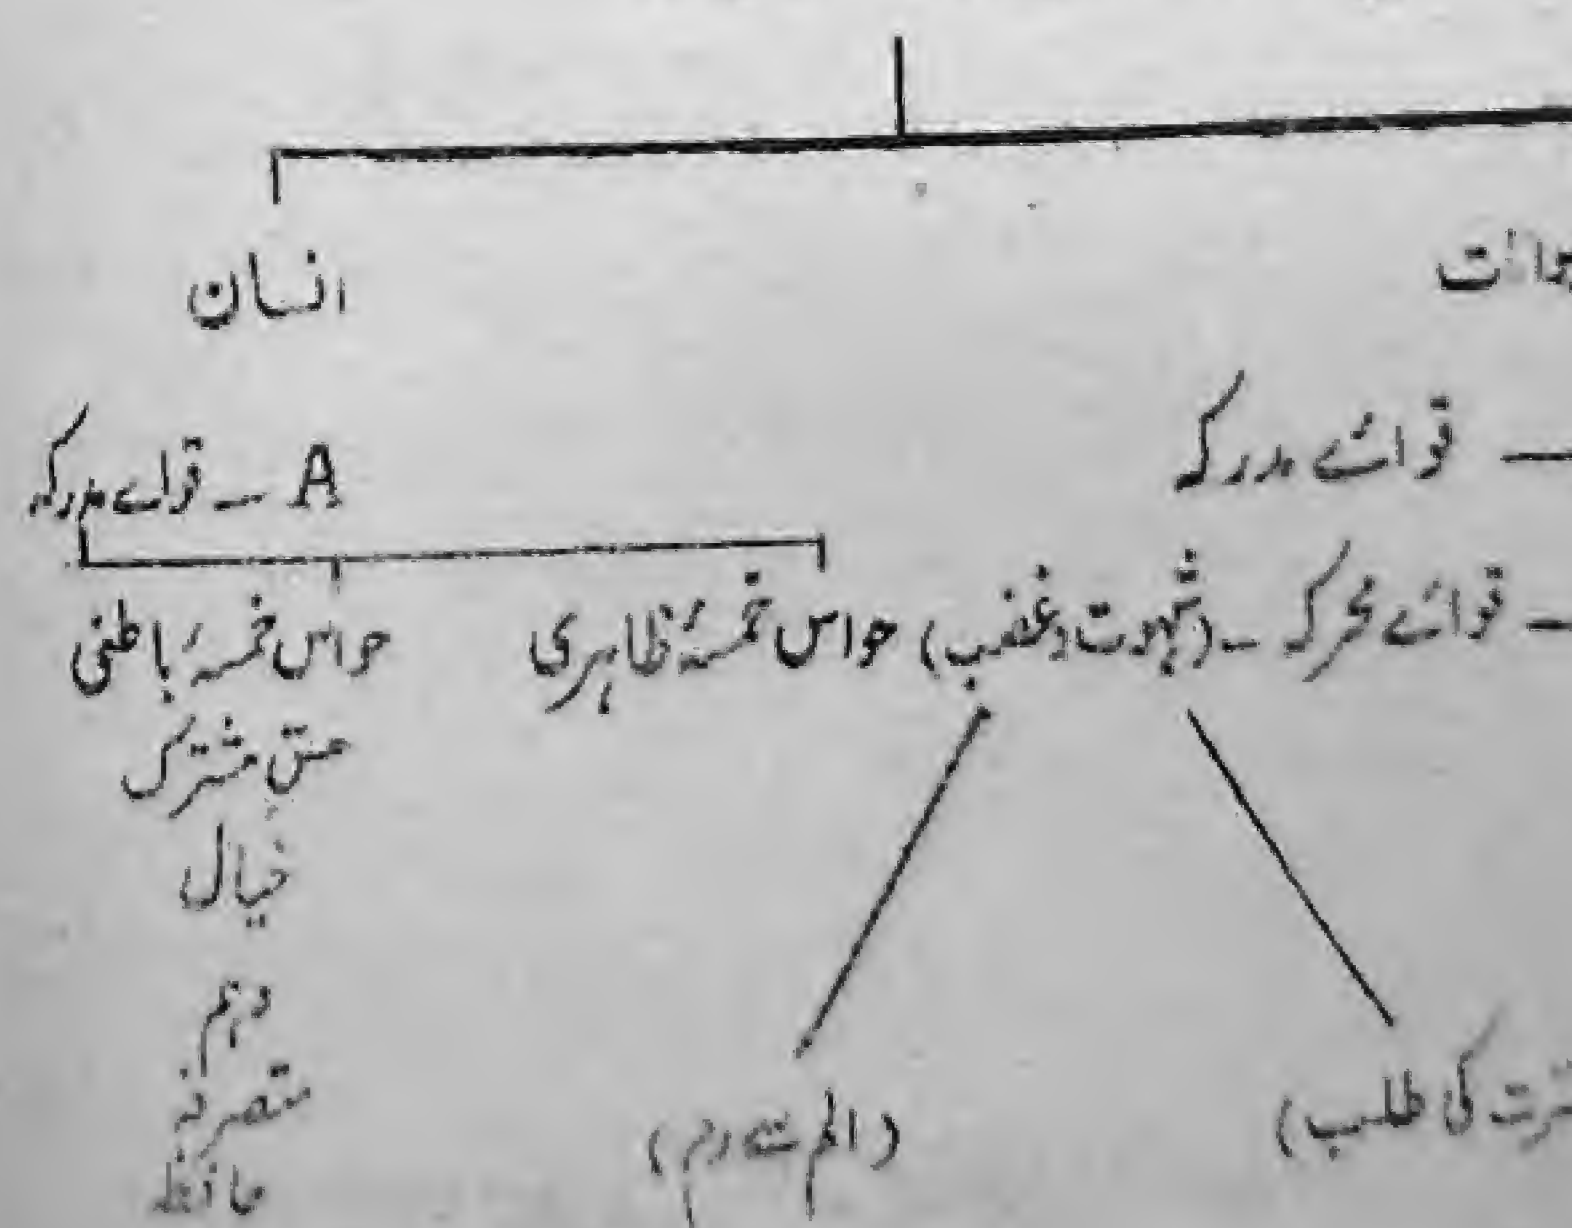 انسان
قوائے مدرکہ
A – قوائے مدرکہ
قوائے محرکہ – (شہوت و غضب)
حواس خمسۂ ظاہری
حواس خمسۂ باطنی
حسِّ مشترک
خیال
وہم
متصرفہ
حافظہ
کی طلب)
(الم سے